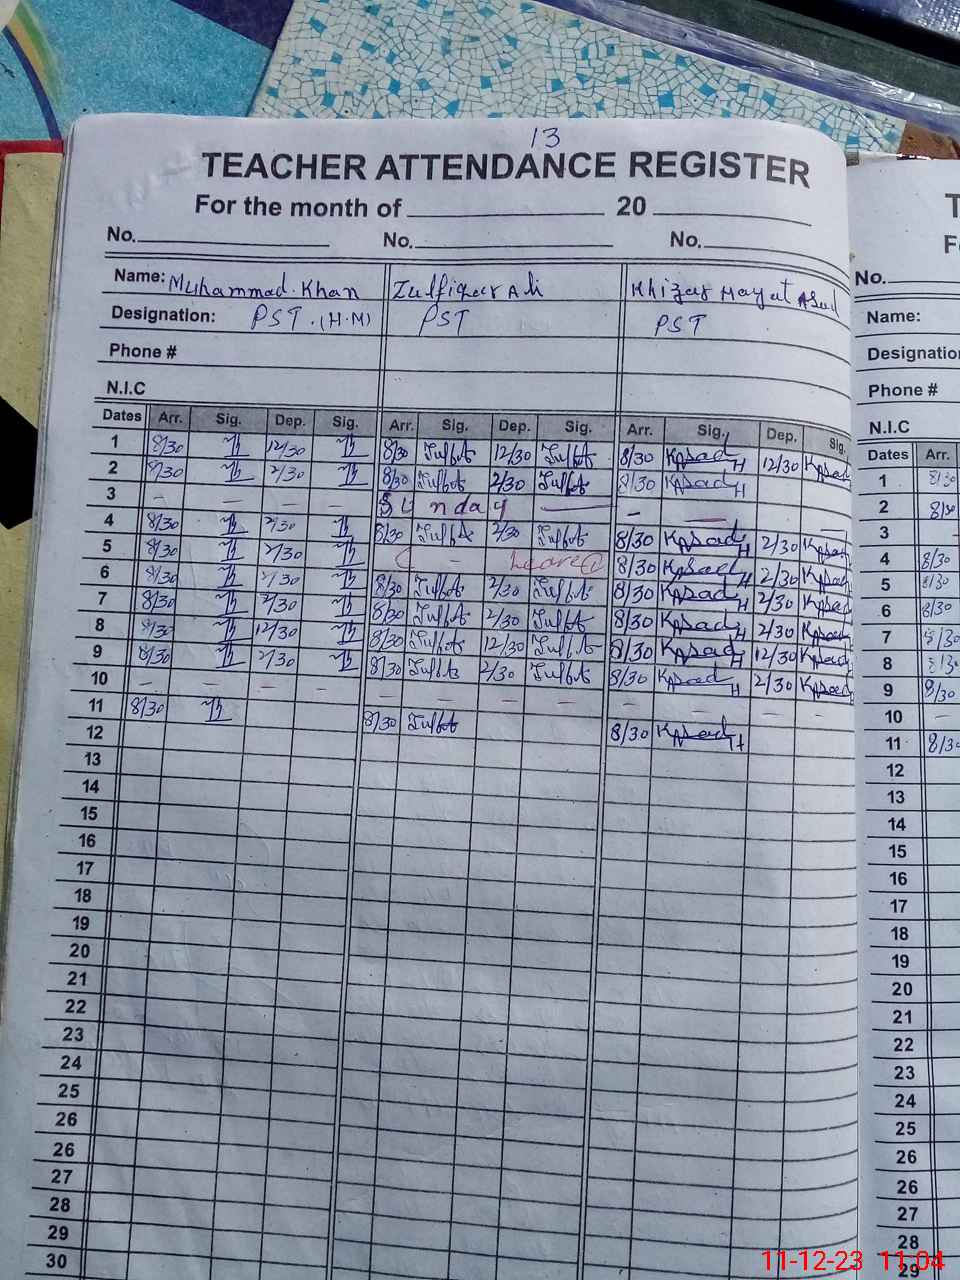 13
TEACHER ATTENDANCE REGISTER
For the month of 20
No. No. No.
Name: Muhammad Khan Zulfiqar Ali Khizar Hayat Asad
Designation: PST. (H.M) PST PST
Phone #
N.I.C
Dates Arr. Sig. Dep. Sig. Arr. Sig. Dep. Sig. Arr. Sig. Dep. Sig.
1 8/30 12/30 8/30 12/30 8/30 KAsad 12/30 KAsad
2 8/30 2/30 8/30 2/30 8/30 KAsad
3 - - - - Sunday - -
4 8/30 2/30 8/30 2/30 8/30 KAsad 2/30 KAsad
5 8/30 2/30 Leave 8/30 KAsad 2/30 KAsad
6 8/30 2/30 8/30 2/30 8/30 KAsad 2/30 KAsad
7 8/30 2/30 8/30 2/30 8/30 KAsad 2/30 KAsad
8 8/30 12/30 8/30 12/30 8/30 KAsad 12/30 KAsad
9 8/30 2/30 8/30 2/30 8/30 KAsad 2/30 KAsad
10 - - - - - - - - - - - -
11 8/30 8/30 8/30 KAsad
12
13
14
15
16
17
18
19
20
21
22
23
24
25
26
26
27
28
29
30
T
F
No.
Name:
Designatio
Phone #
N.I.C
Dates Arr.
1 8/30
2 8/30
3 -
4 8/30
5 8/30
6 8/30
7 8/30
8 8/30
9 8/30
10 -
11 8/30
12
13
14
15
16
17
18
19
20
21
22
23
24
25
26
26
27
28
29
11-12-23 11:04